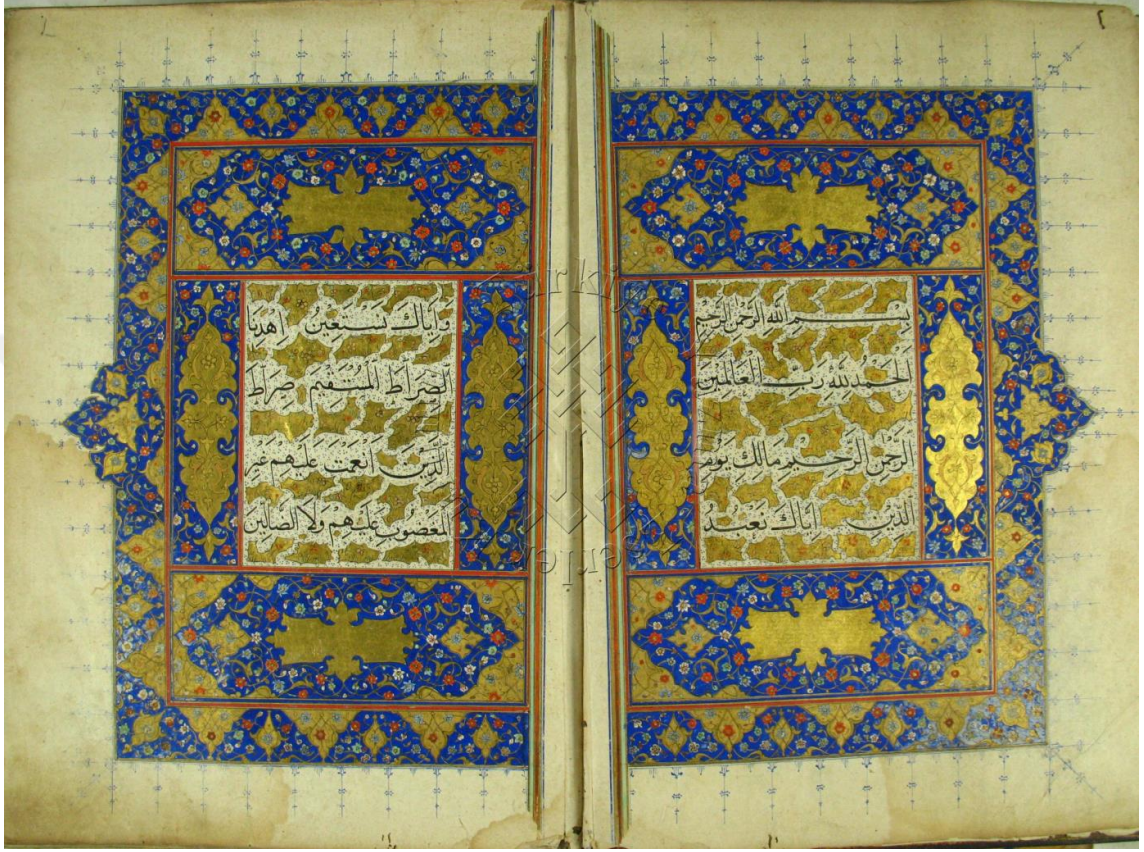 بِسْمِ اللهِ الرَّحْمٰنِ الرَّحِيْمِ
اَلْحَمْدُ لِلّٰهِ رَبِّ الْعَالَمِيْنَ
الرَّحْمٰنِ الرَّحِيْمِ مَالِكِ يَوْمِ
الدِّيْنِ اِيَّاكَ نَعْبُدُ
وَاِيَّاكَ نَسْتَعِيْنُ اِهْدِنَا
الصِّرَاطَ الْمُسْتَقِيْمَ صِرَاطَ
الَّذِيْنَ اَنْعَمْتَ عَلَيْهِمْ غَيْرِ
الْمَغْضُوْبِ عَلَيْهِمْ وَلَا الضَّالِّيْنَ